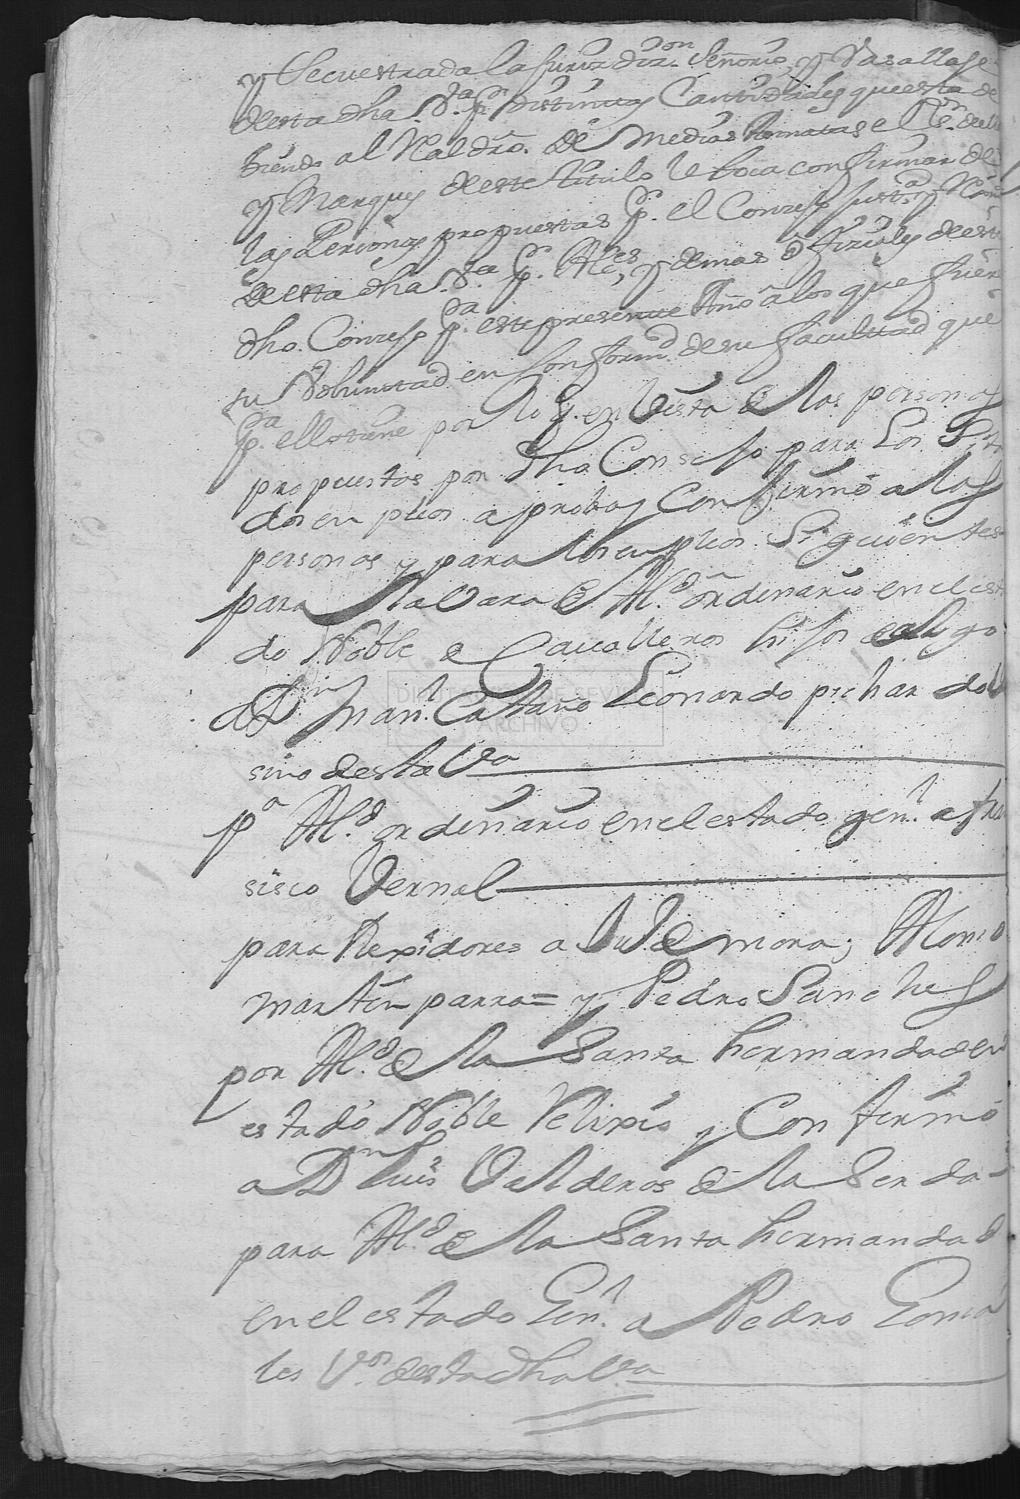 y Secuestrada la Jurizdizⁿ. Señorio, y Vasallaje
desta dha. Vª. pʳ distintas Cantidades que esta de
biendo al Rˡ dro. de medias Annatas el
y Marques deste titulo le toca confirmar de
las Personas propuestas pʳ. el Consejo Justª. y
de esta dha. Vª. pʳ. Alᵉˢ, y demas ofiziales deeste
dho. Consejo pª. este presente Año â los que fuere
su Voluntad en Conformᵈ. de su facultad que
pª. ello tiene por lo q. en Vista de las personas
propuestas por dho Consejo para Los
dos en pleos aproboy Confirmó a las
personas y para los en pleos Siguientes
para la Vara de Alᵈᵉ ordinario en el esta
do Noble de Cavalleros hijos dealgo
a Dⁿ Juan. Catano Leonardo pichardo Ve
sino desta Vª
pª Alᵈᵉ. ordinario en el estado genˡ. a fran
sisco Vernal
para Rexidores a Juº. de mora; Alonso
martin parra= y Pedro Sanches
por Alᵈᵉ. de la Santa hermandad en
estado Noble Velixio y Confirmó
a Dⁿ Luis Valderas de la Serda
para Alᵈᵉ. de la Santa hermandad
en el estado Genˡ. a Pedro Gonsa
les Vº. desta dha Vª
DIPUTACIÓN DE SEVILLA
ARCHIVO